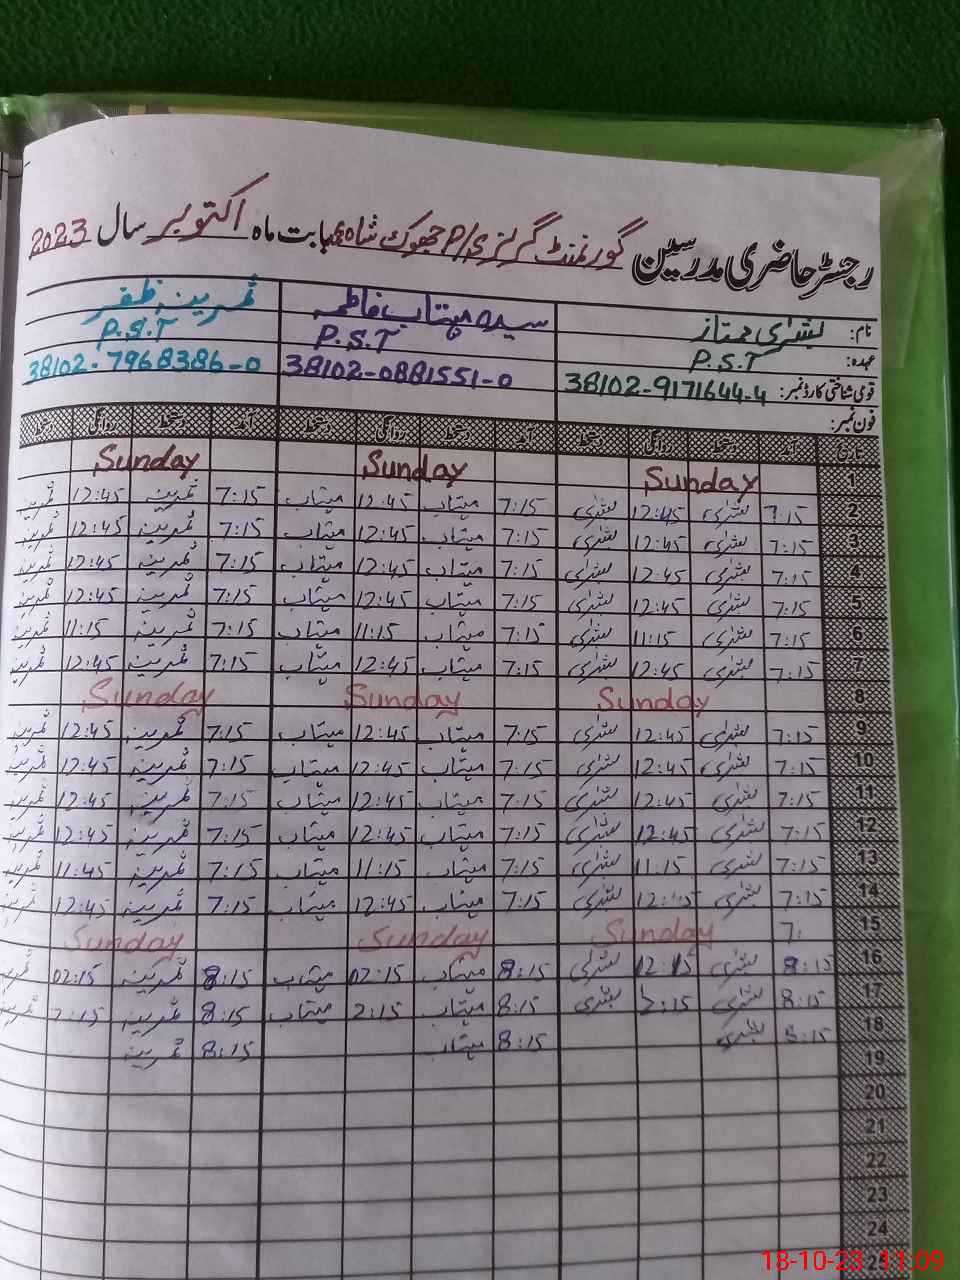 رجسٹر حاضری مدرسین گورنمنٹ گرلز P/S جھوک شاہ بابت ماہ اکتوبر سال 2023
نام: بشرٰی ممتاز سیدہ مہتاب فاطمہ ثمرینہ ظفر
عہدہ: P.S.T P.S.T P.S.T
قومی شناختی کارڈ نمبر: 38102-9171644-4 38102-0881551-0 38102-7968386-0
فون نمبر:
تاریخ آمد دستخط روانگی دستخط آمد دستخط روانگی دستخط آمد دستخط روانگی دستخط
1 Sunday Sunday Sunday
2 7:15 بشرٰی 12:45 بشرٰی 7:15 مہتاب 12:45 مہتاب 7:15 ثمرینہ 12:45 ثمرینہ
3 7:15 بشرٰی 12:45 بشرٰی 7:15 مہتاب 12:45 مہتاب 7:15 ثمرینہ 12:45 ثمرینہ
4 7:15 بشرٰی 12:45 بشرٰی 7:15 مہتاب 12:45 مہتاب 7:15 ثمرینہ 12:45 ثمرینہ
5 7:15 بشرٰی 12:45 بشرٰی 7:15 مہتاب 12:45 مہتاب 7:15 ثمرینہ 12:45 ثمرینہ
6 7:15 بشرٰی 11:15 بشرٰی 7:15 مہتاب 11:15 مہتاب 7:15 ثمرینہ 11:15 ثمرینہ
7 7:15 بشرٰی 12:45 بشرٰی 7:15 مہتاب 12:45 مہتاب 7:15 ثمرینہ 12:45 ثمرینہ
8 Sunday Sunday Sunday
9 7:15 بشرٰی 12:45 بشرٰی 7:15 مہتاب 12:45 مہتاب 7:15 ثمرینہ 12:45 ثمرینہ
10 7:15 بشرٰی 12:45 بشرٰی 7:15 مہتاب 12:45 مہتاب 7:15 ثمرینہ 12:45 ثمرینہ
11 7:15 بشرٰی 12:45 بشرٰی 7:15 مہتاب 12:45 مہتاب 7:15 ثمرینہ 12:45 ثمرینہ
12 7:15 بشرٰی 12:45 بشرٰی 7:15 مہتاب 12:45 مہتاب 7:15 ثمرینہ 12:45 ثمرینہ
13 7:15 بشرٰی 11:15 بشرٰی 7:15 مہتاب 11:15 مہتاب 7:15 ثمرینہ 11:45 ثمرینہ
14 7:15 بشرٰی بشرٰی 7:15 مہتاب 12:45 مہتاب 7:15 ثمرینہ 12:45 ثمرینہ
15 7: Sunday Sunday Sunday
16 8:15 بشرٰی بشرٰی 8:15 مہتاب 02:15 مہتاب 8:15 ثمرینہ 02:15 ثمرینہ
17 8:15 بشرٰی 2:15 بشرٰی 8:15 مہتاب 2:15 مہتاب 8:15 ثمرینہ ثمرینہ
18 8:15 بشرٰی 8:15 مہتاب 8:15 ثمرینہ
19
20
21
22
23
24
25
18-10-23 11:09